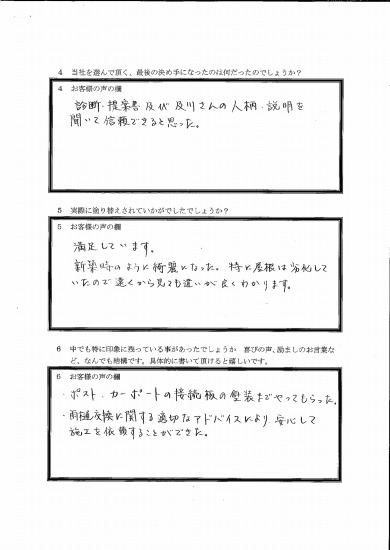 4 当社を選んで頂く、最後の決め手になったのは何だったのでしょうか?
4 お客様の声の欄
診断・提案書及び及川さんの人柄・説明を
聞いて信頼できると思った。
5 実際に塗り替えされていかがでしたでしょうか?
5 お客様の声の欄
満足しています。
新築時のように綺麗になった。特に屋根は劣化して
いたので遠くから見ても違いが良くわかります。
6 中でも特に印象に残っている事があったでしょうか 喜びの声、励ましのお言葉な
ど、なんでも結構です。具体的に書いて頂けると嬉しいです。
6 お客様の声の欄
・ポスト、カーポートの接続板の塗装までやってもらった。
・雨樋交換に関する適切なアドバイスにより、安心して
施工を依頼することができた。